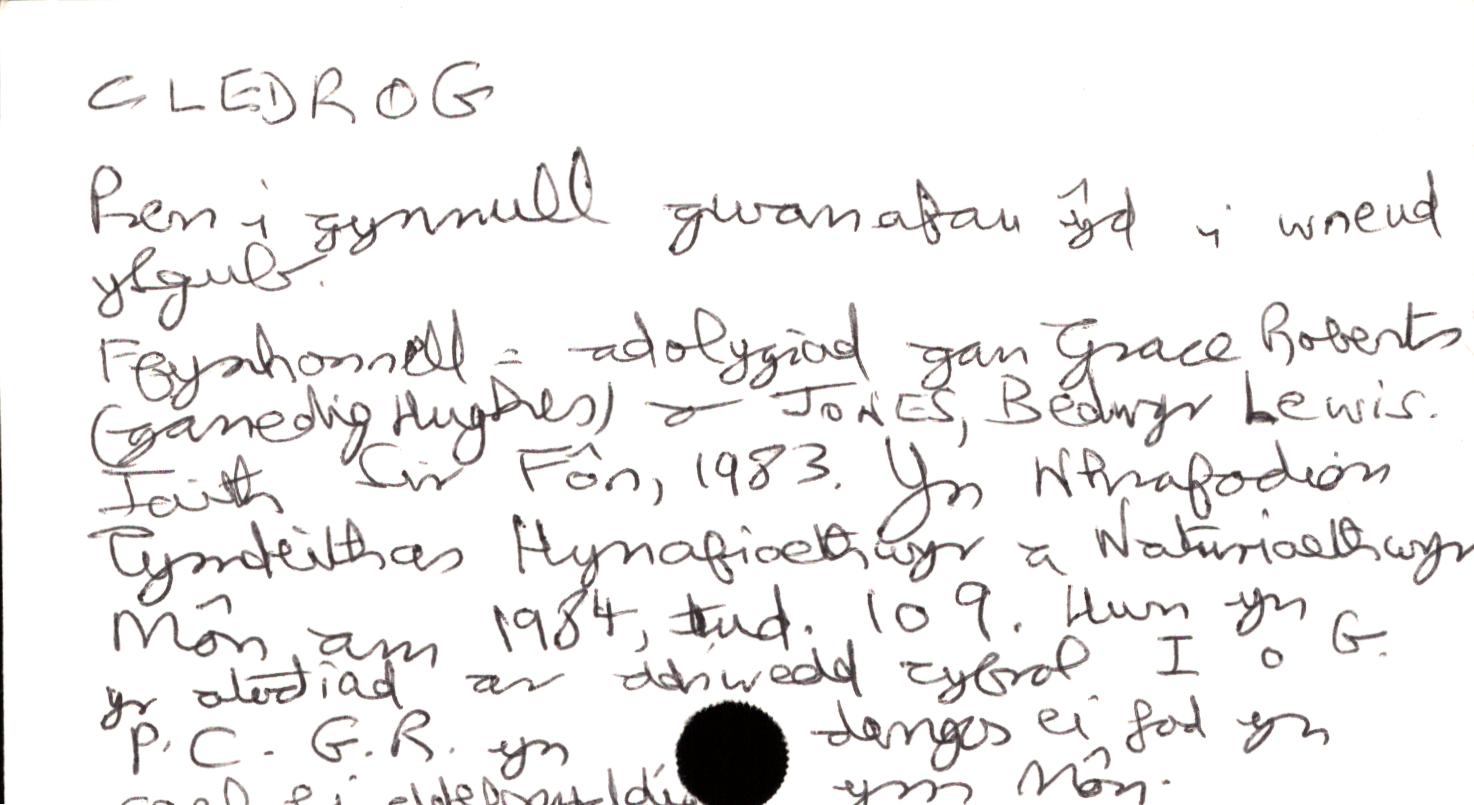 CLEDROG
Pren i gynnull gwanafau ŷd i wneud
ysgub.
Ffynhonnell = adolygiad gan Grace Roberts
(ganedig Hughes) o JONES, Bedwyr Lewis.
Iaith Sir Fôn, 1983. Yn Nhrafodion
Cymdeithas Hynafiaethwyr a Naturiaethwyr
Môn am 1984, tud. 109. Hwn yn
yr atodiad ar ddiwedd cyfrol I o G.
P.C. G.R. yn dangos ei fod yn
cael ei ym Môn.